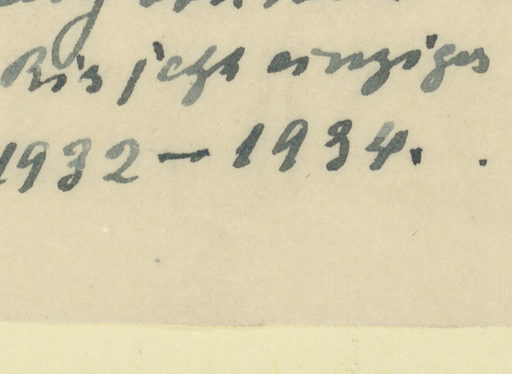 Bis jetzt einziges
1932 – 1934.